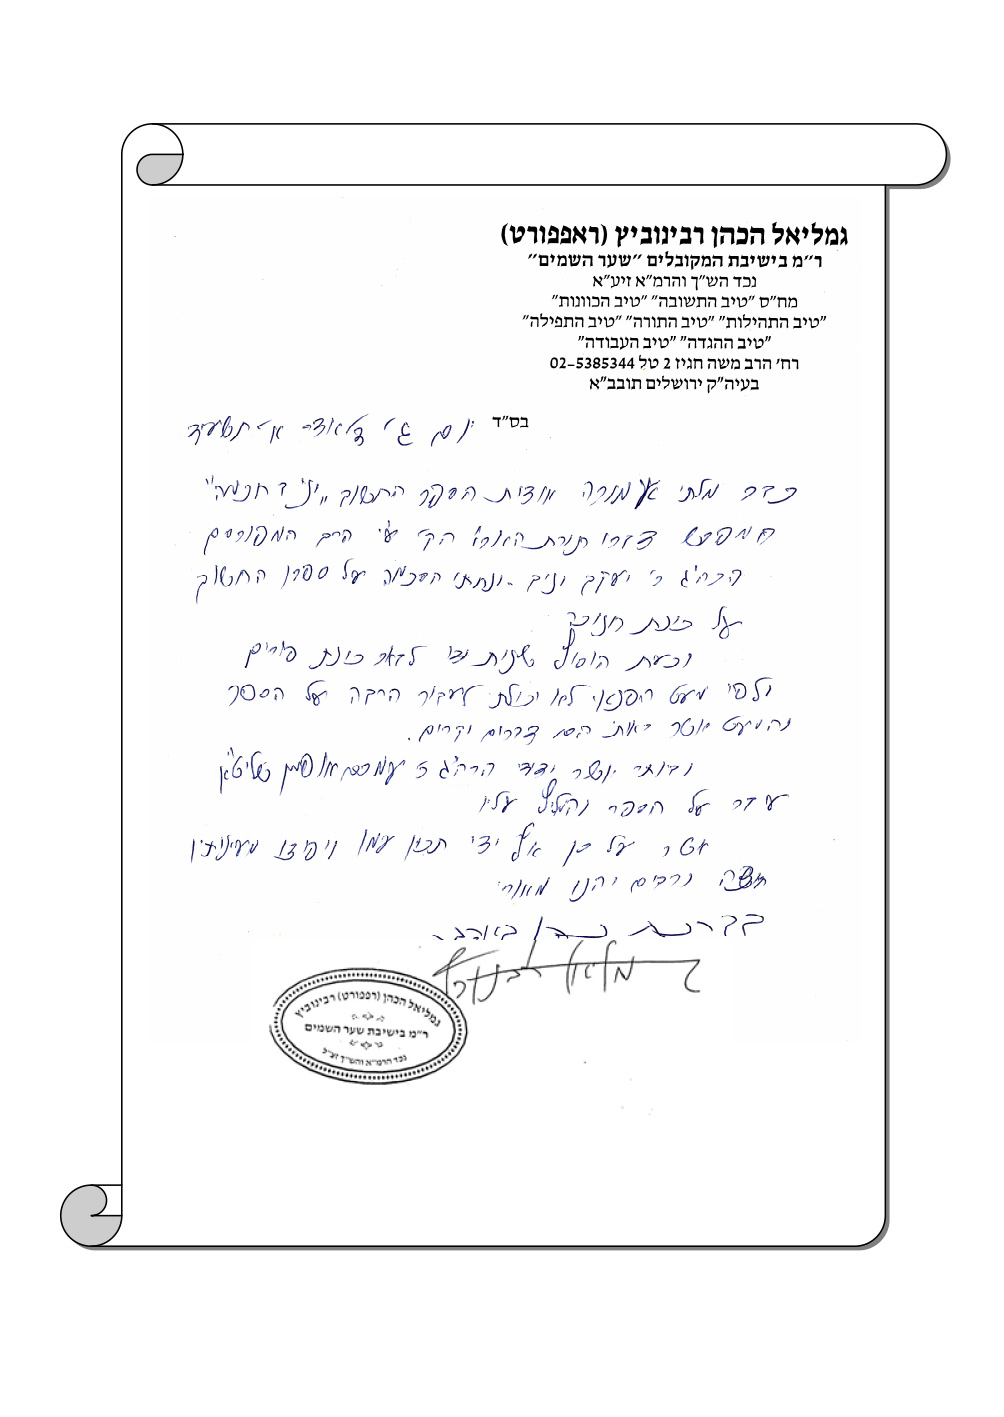 גמליאל הכהן רבינוביץ (ראפפורט)
ר״מ בישיבת המקובלים ״שער השמים״
נכד הש״ך והרמ״א זיע״א
מח״ס ״טיב התשובה״ ״טיב הכוונות״
״טיב התהילות״ ״טיב התורה״ ״טיב התפילה״
״טיב ההגדה״ ״טיב העבודה״
רח׳ הרב משה חגיז 2 טל 02-5385344
בעיה״ק ירושלים תובב״א
בס״ד
יום ג׳ א׳ תשע״ד
כבר אמורה אודות הספר החשוב
תורת האר״י הק׳ ע״י הרב המפורסם
הרה״ג ר׳ יעקב ונתתי הסכמה על ספרו החשוב
על כונת חנוכה
וכעת הוסיף שנית ידו לבאר כונת פורים
ולפי מעט הפנאי לא יכולתי לעבור הרבה על הספר
והמעט אשר ראיתי הם דברים יקרים.
וביותר אשר ידידי הרה״ג ר׳ שליט״א
עבר על הספר והמליץ עליו
אשר על כן אף ידי תכון עמו ויפוצו מעינותיו
חוצה ורבים יהנו מאורו
בברכת כהן באהבה
גמליאל רבינוביץ
גמליאל הכהן (רפפורט) רבינוביץ
ר״מ בישיבת שער השמים
נכד הרמ״א והש״ך זצ״ל